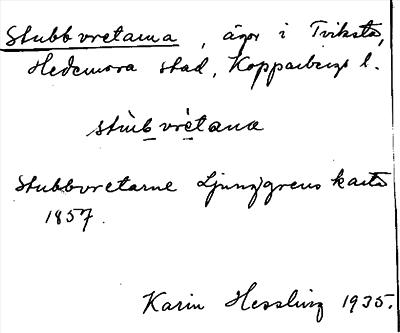 Stubbvretarna, ägor i Tviksta,
Hedemora stad, Kopparbergs l.
stùb vrètana
Stubbvretarne Ljunggrens karta
1857.
Karin Hessling 1935.